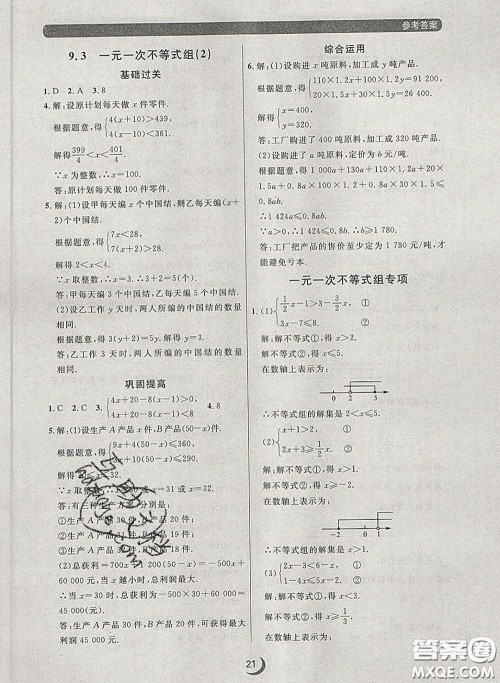 参考答案
9.3 一元一次不等式组(2)
基础过关
1. D 2. A 3. 8
4. 解:设原计划每天做 x 件零件.
根据题意,得{4(x+10)>439,
4x<401.
解得 399/4<x<401/4.
∵x 为整数,∴x=100.
答:原计划每天做 100 件零件.
5. 解:(1)设甲每天编 x 个中国结,则乙每天编(x+
2)个中国结.
根据题意,得{7x<28,
7(x+2)>28.
解得 2<x<4.
∵x 取整数,∴x=3.∴x+2=5.
答:甲每天编 3 个中国结,乙每天编 5 个中国结.
(2)设乙工作 y 天时,两人所编的中国结的数量
相同.
根据题意,得 3(y+2)=5y.解得 y=3.
答:乙工作 3 天时,两人所编的中国结的数量
相同.
巩固提高
1. C 2. C 3. {4x+20-8(x-1)>0,
4x+20-8(x-1)<8 4. 8
5. 解:(1)设生产 A 产品 x 件,B 产品(50-x)件.
根据题意,得{9x+4(50-x)≤360,
3x+10(50-x)≤290.
解得 30≤x≤32.
∵x 取整数,∴x=30 或 x=31 或 x=32.
∴有三种生产方案,分别是:
①生产 A 产品 30 件,B 产品 20 件;
②生产 A 产品 31 件,B 产品 19 件;
③生产 A 产品 32 件,B 产品 18 件.
(2)总获利为 700x+1 200(50-x)=-500x+
60 000 元,当 x 越小时,总利润最大.
当 x=30 时,总获利为-500×30+60 000=
45 000(元).
答:生产 A 产品 30 件,B 产品 20 件,可获得最大
利润 45 000 元.
综合运用
6. 解:(1)设购进 x 吨原料,加工成 y 吨产品.
根据题意,得{110×1.2x+100×1.5y=100 800,
20×1.5x+10×0.9y=14 880.
解得{x=400,
y=320.
答:工厂购进了 400 吨原料,加工成 320 吨产品.
(2)设购进 a 吨原料,定价为 b 元/吨.
根据题意,得 1 000a+110a×1.2+20a×
1.5+0.8a×100×1.5+0.8a×10×0.9≤
0.8ab.
∴1 424a≤0.8ab.
∵a>0,∴1 424≤0.8b.∴b≥1 780.
答:工厂把产品的售价至少定为 1 780 元/吨,才
能避免亏本.
一元一次不等式组专项
1. (1){1/2x-1>3-3/2x, ①
3x-7≤8. ②
解:解不等式①,得 x>2.
解不等式②,得 x≤5.
在数轴上表示为:
0 2 5
∴不等式组的解集是 2<x≤5.
解:解不等式①,得 x>1.
解不等式②,得 x≥-2.
在数轴上表示为:
-2 0 1
∴不等式组的解集为 x>1.
1-x≤4x-2/3. ②
解:解不等式①,得 x>-1.
解不等式②,得 x≥1/3.
在数轴上表示为:
21
答案圈
MXQE.COM